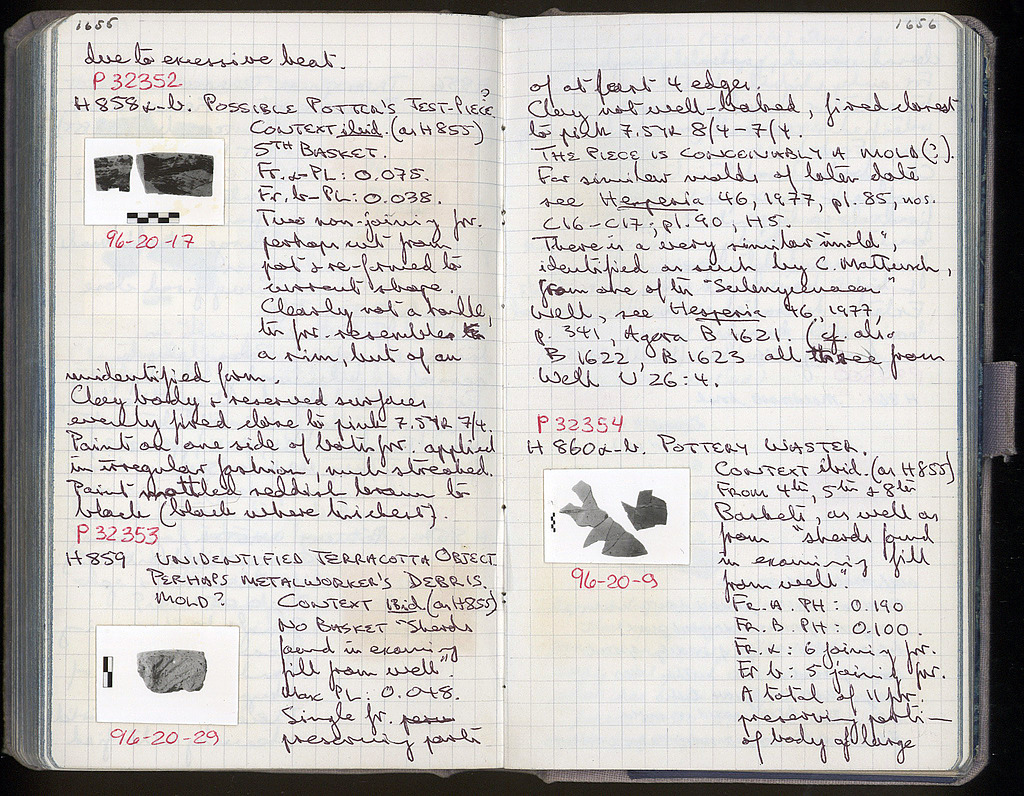 1655
due to excessive heat.
P 32352
H 858 α-b. POSSIBLE POTTER'S TEST-PIECE.?
CONTEXT ibid. (as H 855)
5TH BASKET.
Fr. α-PL: 0.075.
Fr. b-PL: 0.038.
Two non-joining fr.
perhaps cut from
pot & re-formed to
current shape.
Clearly not a handle,
the fr. resembles
a rim, but of an
unidentified form.
Clay body & reserved surfaces
evenly fired close to pink 7.5YR 7/4.
Paint on one side of both fr. applied
in irregular fashion, much streaked.
Paint mottled reddish brown to
black (black where thickest).
96-20-17
P 32353
H 859 UNIDENTIFIED TERRACOTTA OBJECT.
PERHAPS METALWORKER'S DEBRIS.
MOLD?
CONTEXT ibid. (as H 855)
NO BASKET "Sherds
found in examining
fill from well".
Max PL: 0.048.
Single fr.
preserving parts
96-20-29
1656
of at least 4 edges.
Clay not well-baked, fired closest
to pink 7.5YR 8/4-7/4.
THE PIECE IS CONCEIVABLY A MOLD (?).
For similar molds of later date
see Hesperia 46, 1977, pl. 85, nos.
C16-C17; pl. 90, H5.
There is a very similar "mold",
identified as such by C. Mattusch,
from one of the
well, see Hesperia 46, 1977,
p. 341, Agora B 1621. (cf. also
B 1622, B 1623 all three from
Well U 26:4.
P 32354
H 860 α-b. POTTERY WASTER.
CONTEXT ibid. (as H 855)
FROM 4th, 5th & 8th
Baskets, as well as
from "sherds found
in examining fill
from well".
FR. A. PH: 0.190
FR. B. PH: 0.100.
FR. α: 6 joining fr.
Fr b: 5 joining fr.
A total of 11 fr.
preserving parts
of body of large
96-20-9